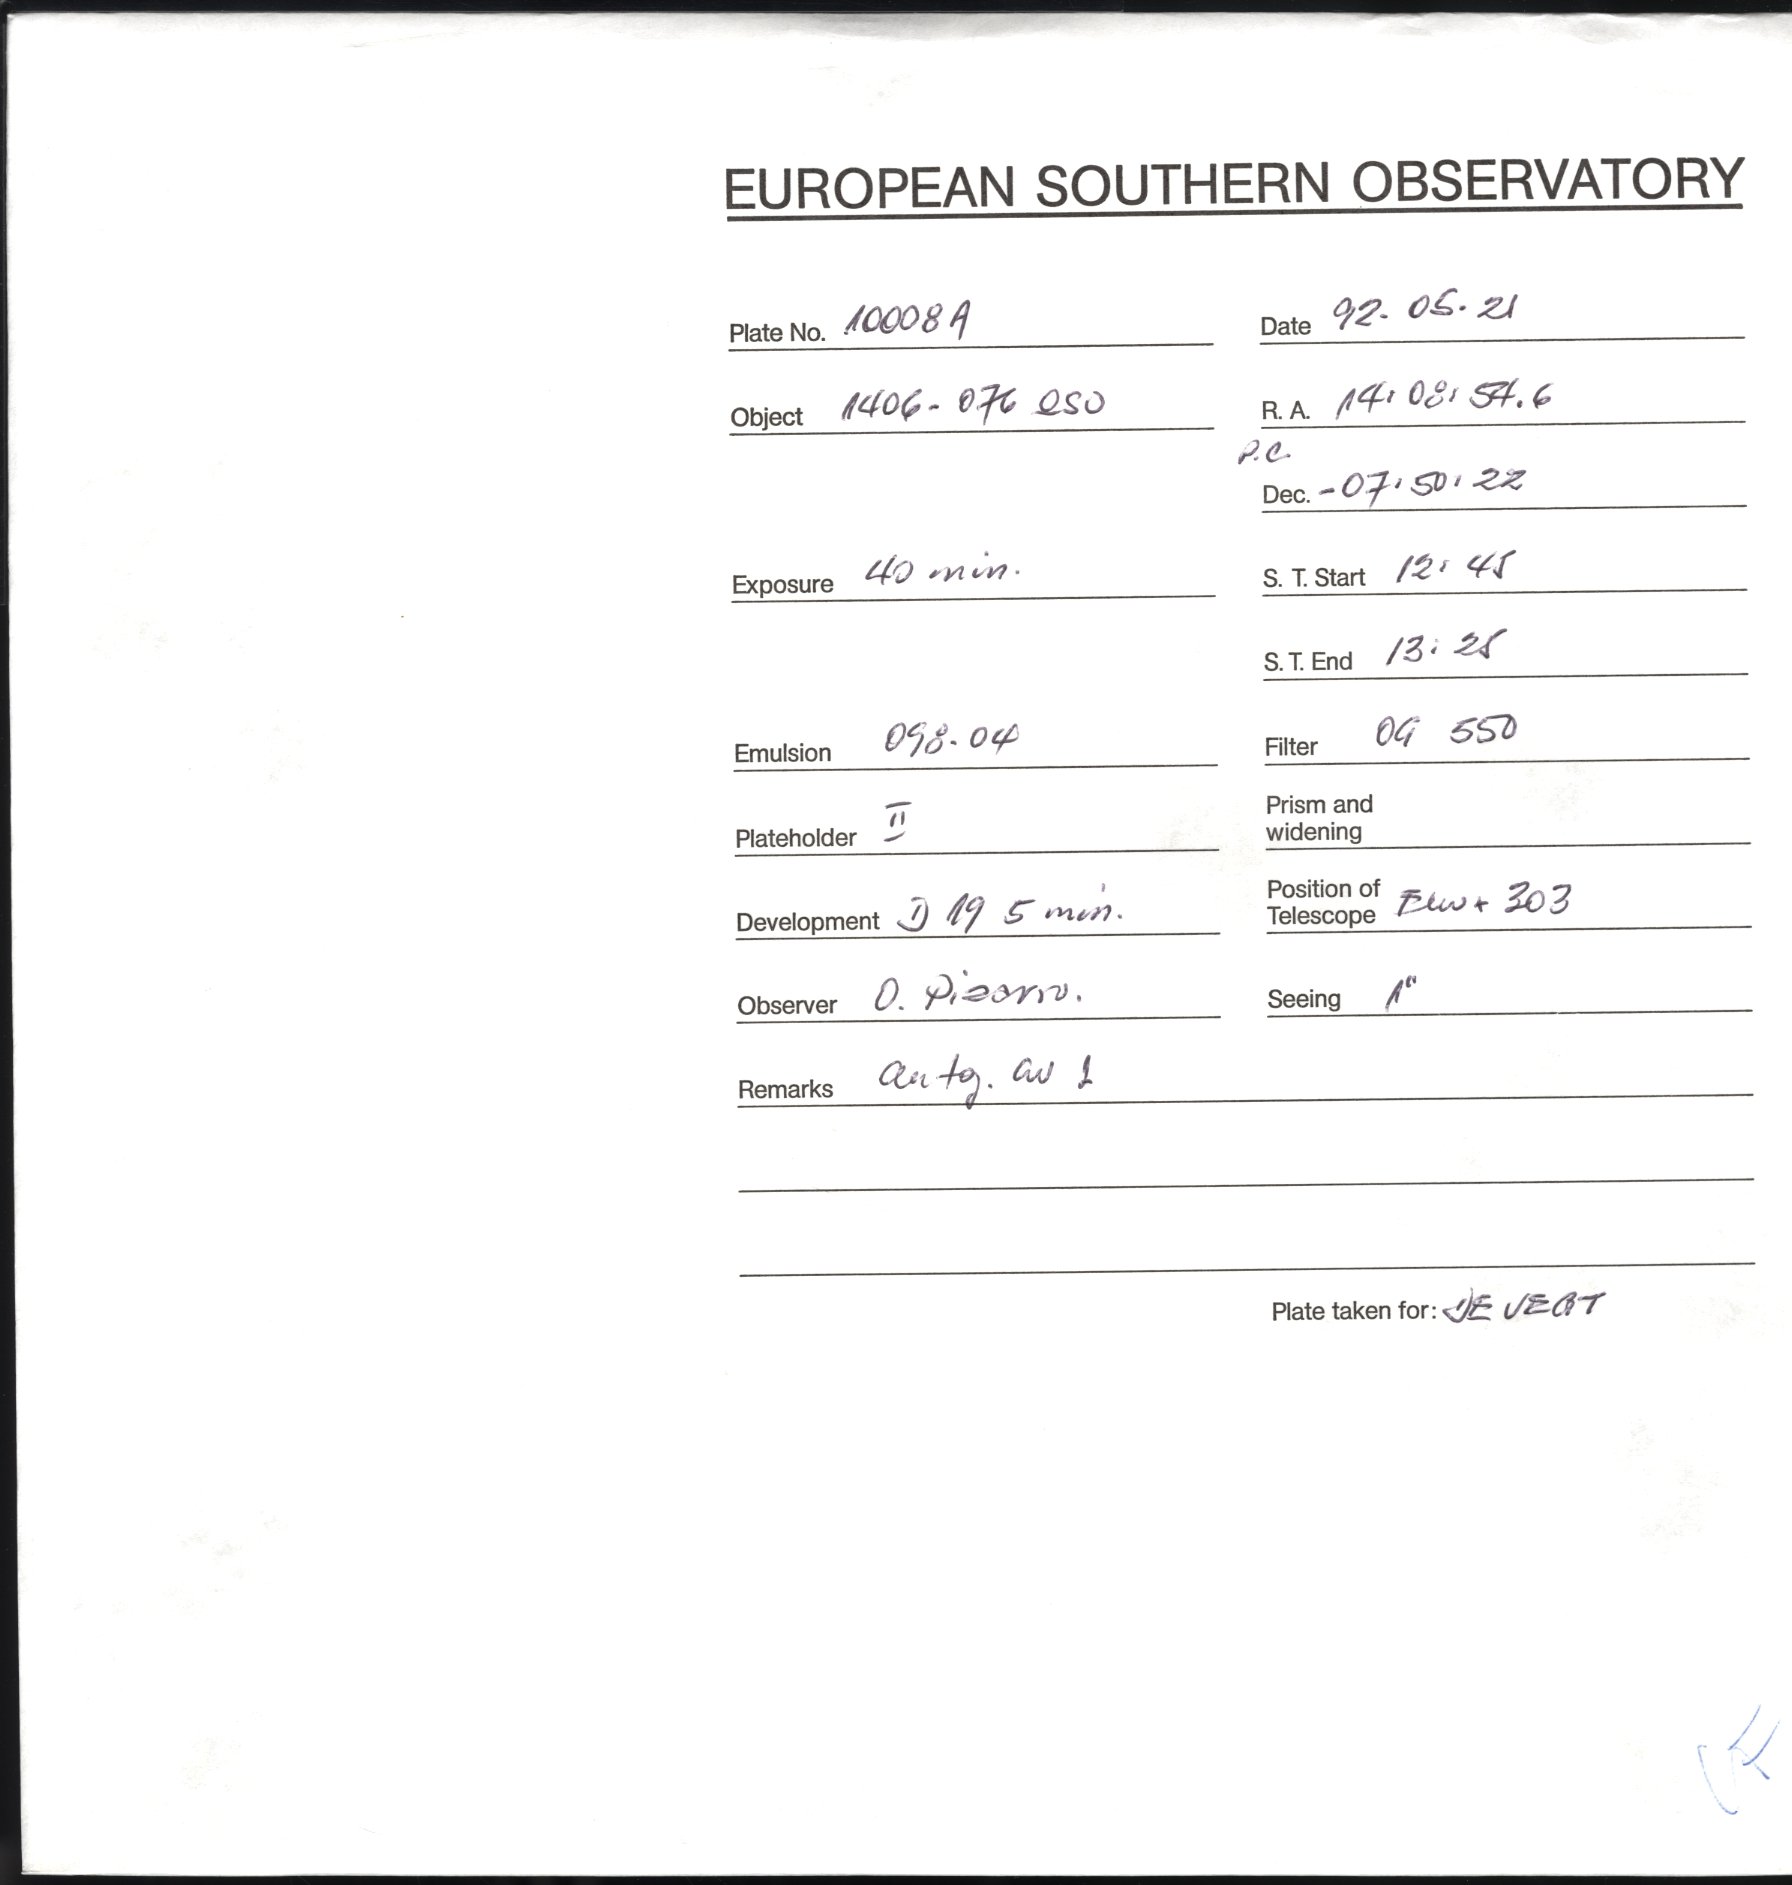 EUROPEAN SOUTHERN OBSERVATORY
Plate No. 10008A
Date 92. 05. 21
Object 1406-076 QSO
R. A. 14: 08: 54.6
P.C.
Dec. -07: 50: 22
Exposure 40 min.
S. T. Start 12: 45
S. T. End 13: 25
Emulsion 098-04
Filter OG 550
Plateholder II
Prism and
widening
Development D 19 5 min.
Position of
Telescope 303
Observer O. Pizarro.
Seeing 1"
Remarks autg. 1
Plate taken for: DE VEGT